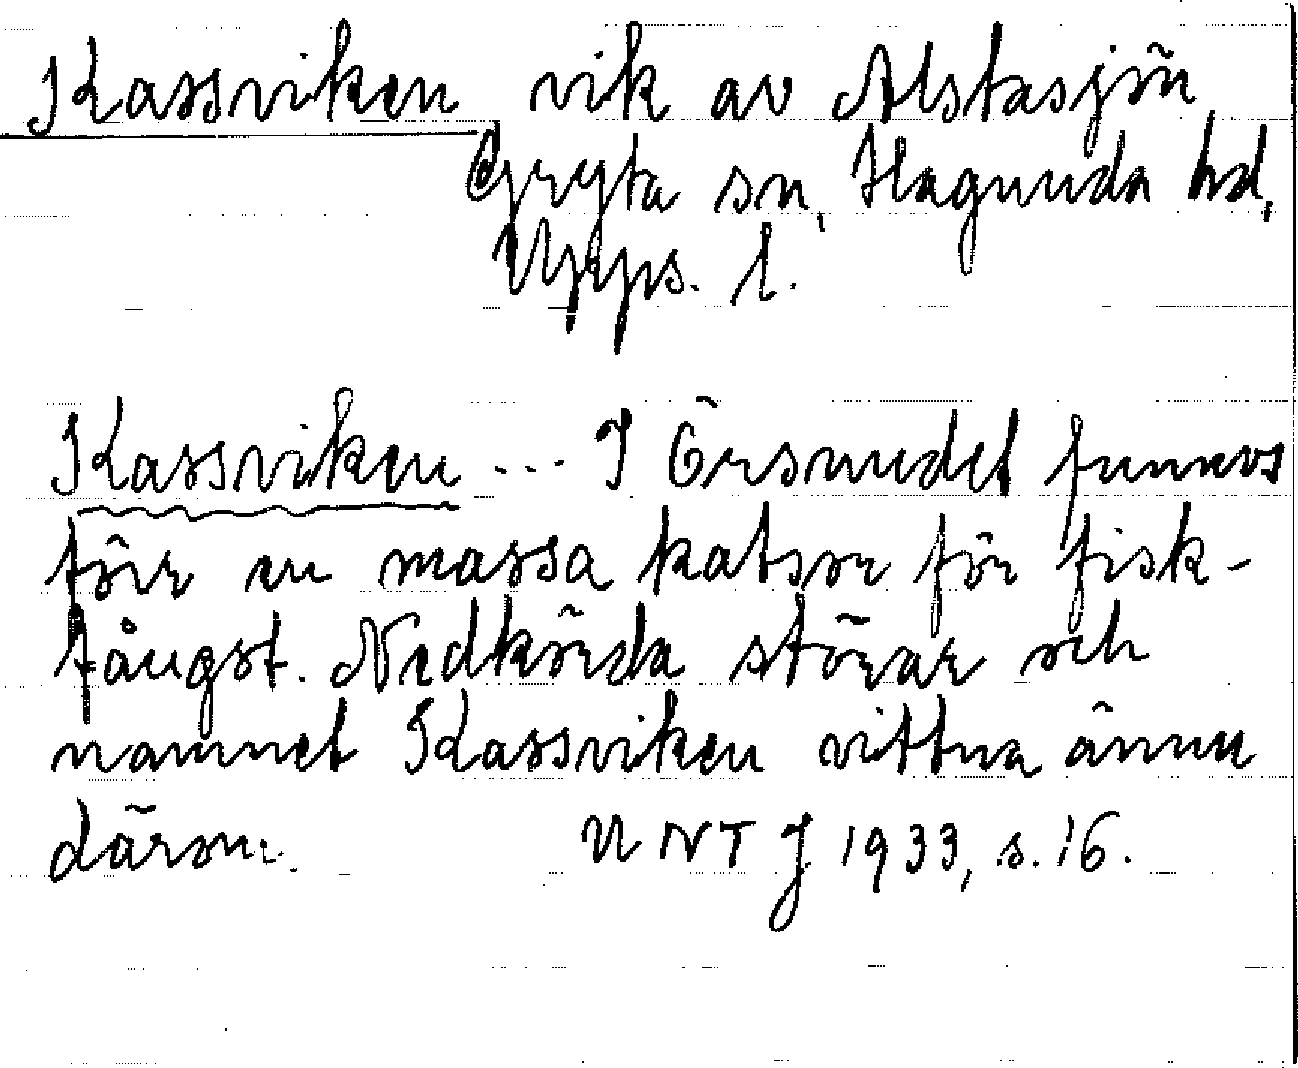 Kassviken vik av Alstasjön
Gryta sn, Hagunda hd,
Upps. l.
Kassviken ... I Örsundet funnos
förr en massa katsor för fisk-
fångst. Nedkörda störar och
namnet Kassviken vittna ännu
därom. UNT J 1933, s. 16.